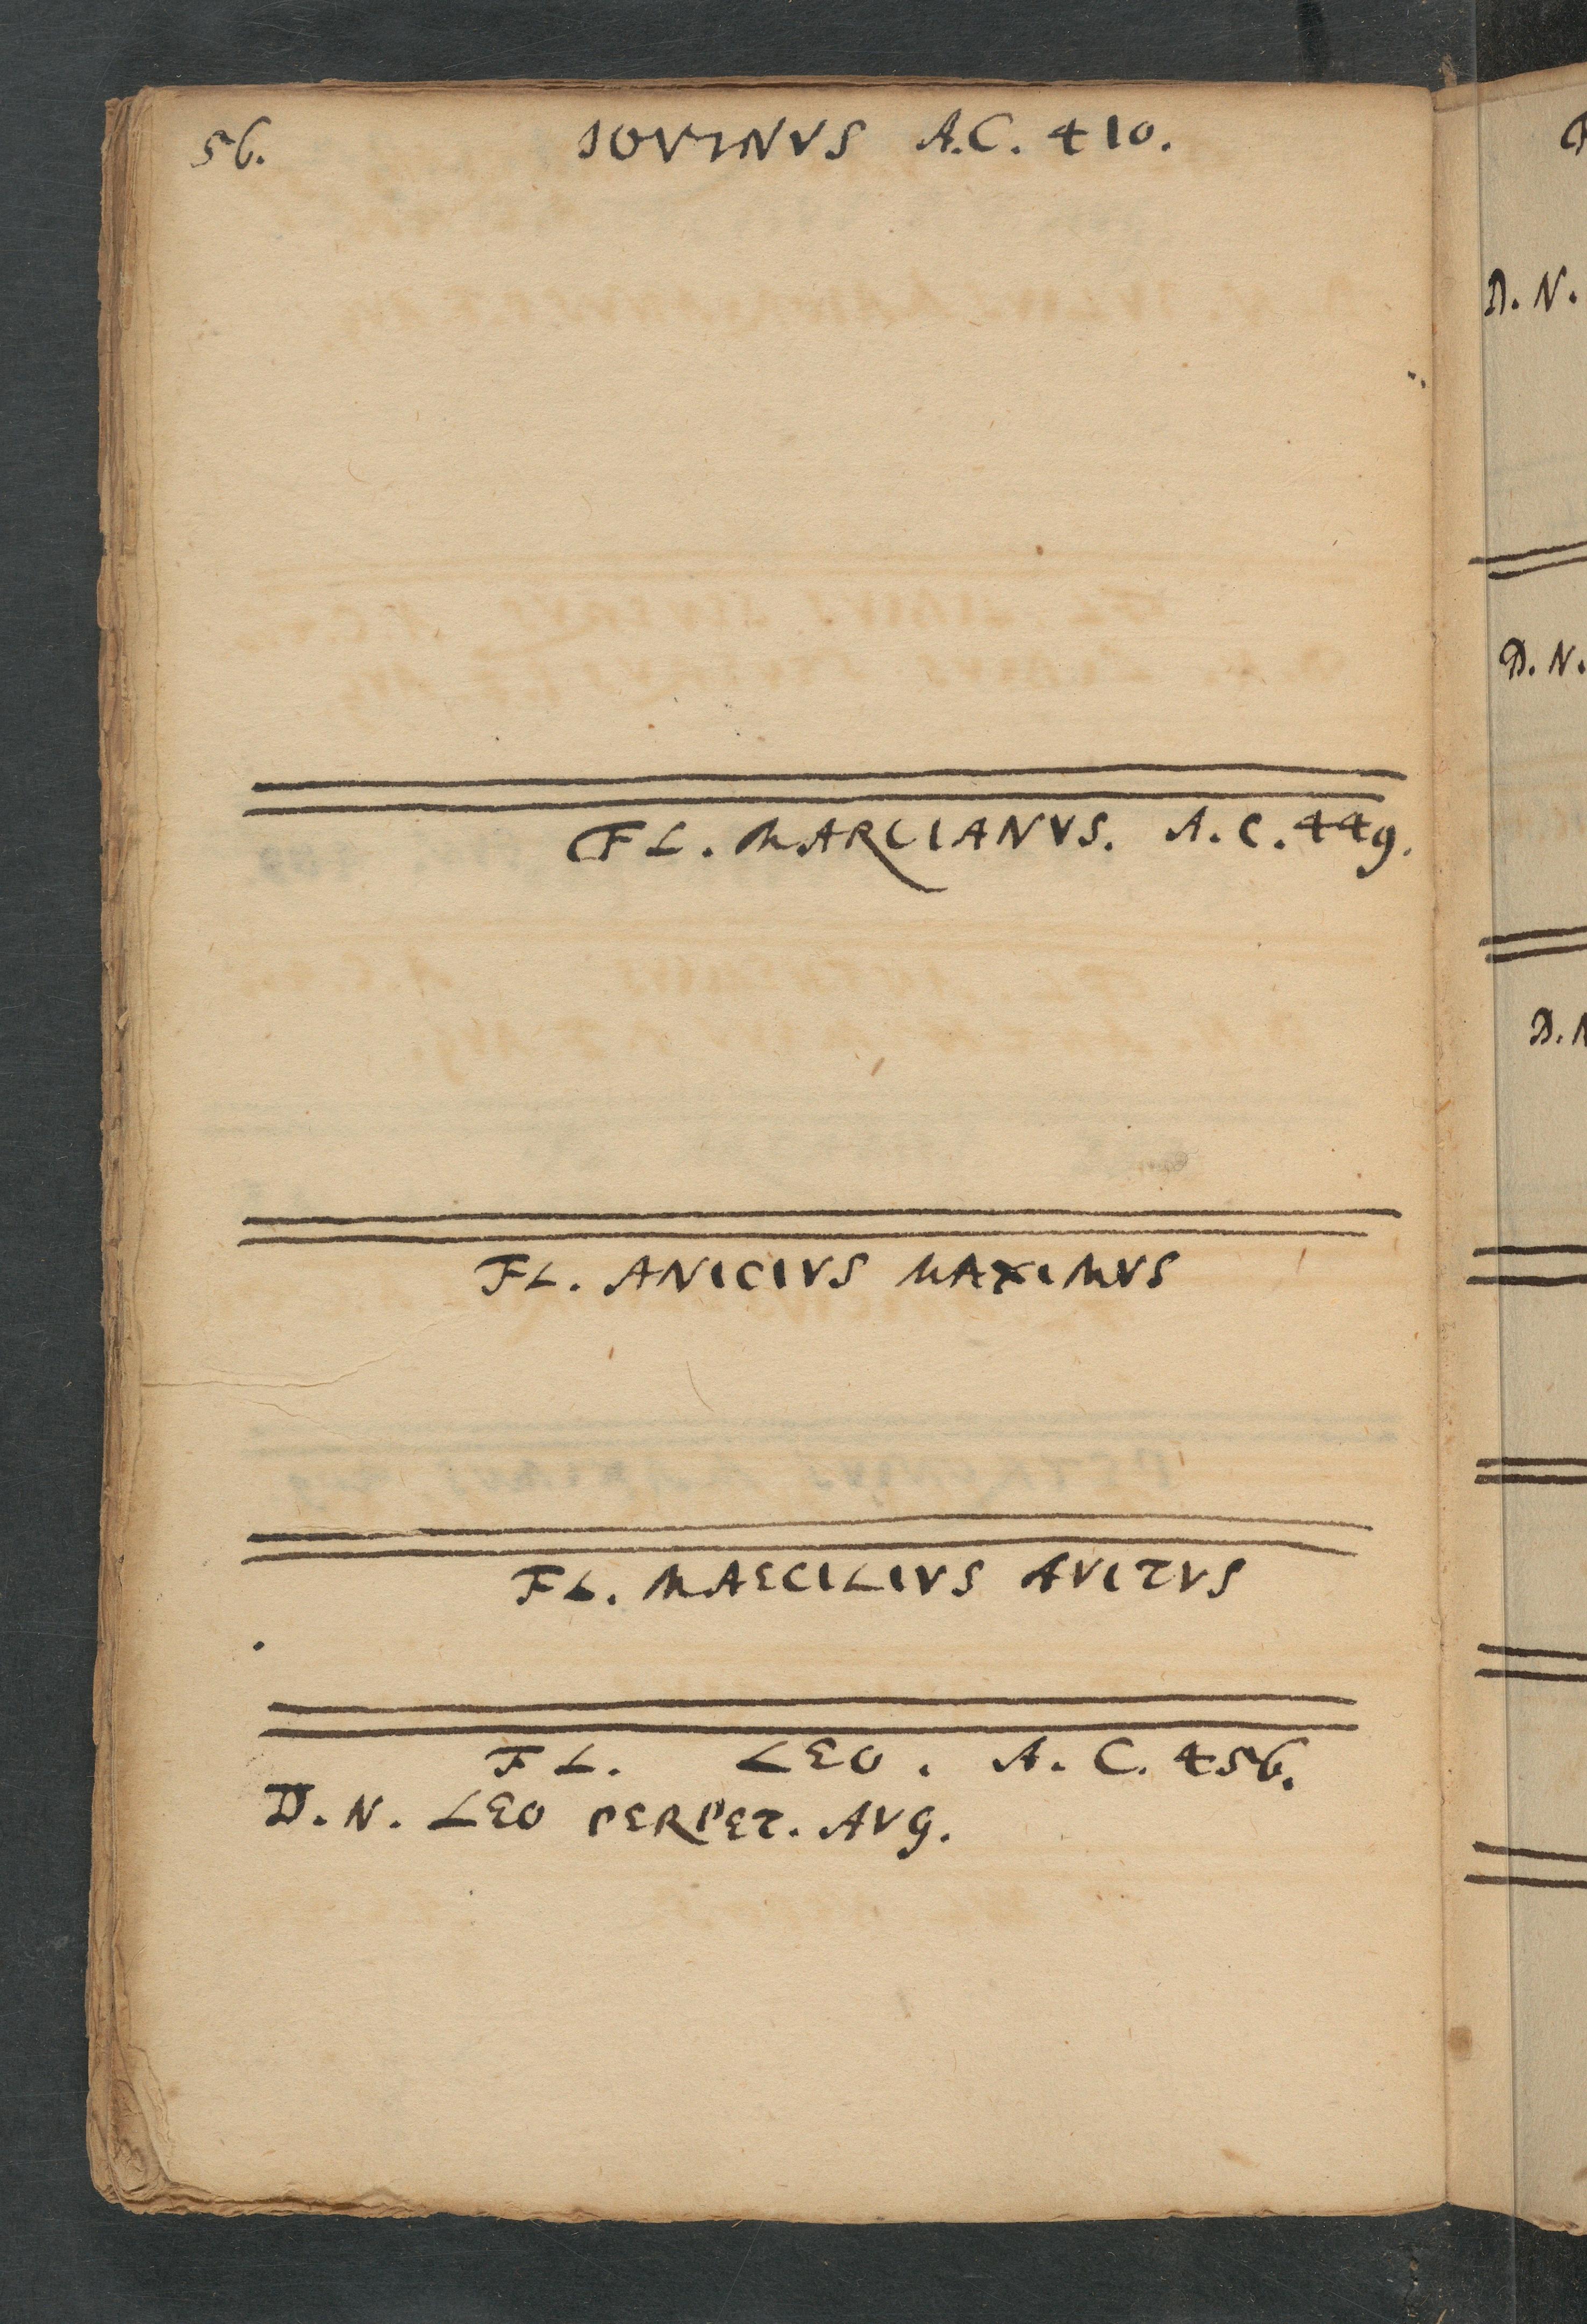 56.
IOVINVS A.C. 410.
FL. MARCIANVS. A.C. 449.
FL. ANICIVS MAXIMVS
FL. MAECILIVS AVITVS
FL. LEO. A.C. 456.
D.N. LEO PERPET. AVG.
D.N.
D.N.